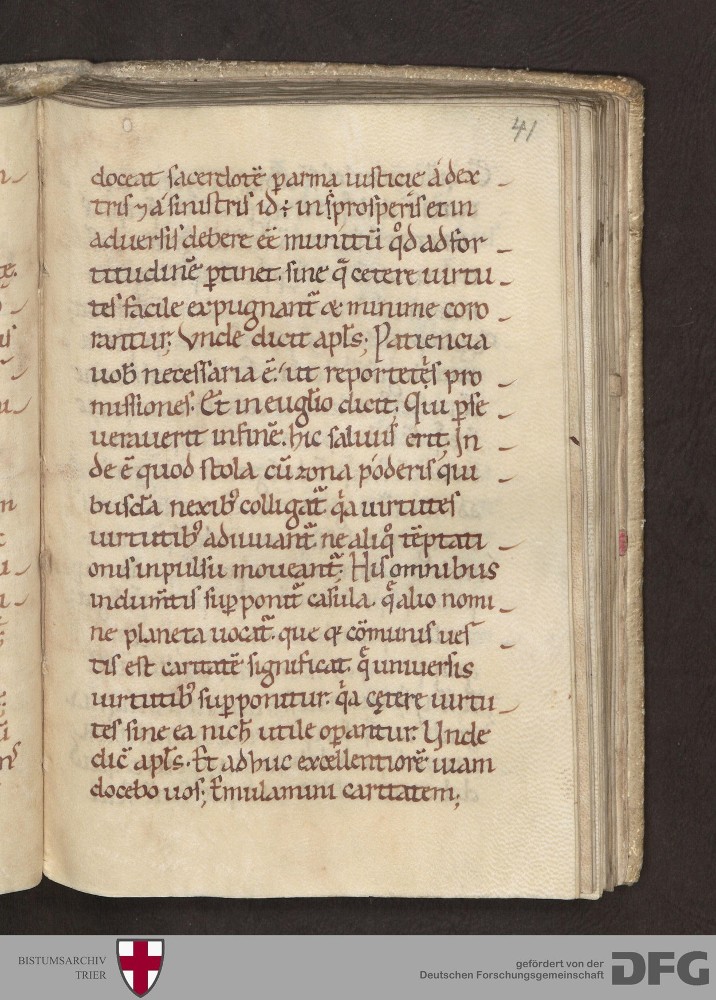 41
doceat sacerdotē ꝑ arma iusticie a dex
tris ⁊ a sinistris id ÷ in ꝓsperis et in
aduersis debere eē munitū qͦd ad for
titudinē ꝑtinet. sine qͣ cetere uirtu
tes facile expugnant᷑ & minime coro
rantur; Vnde dicit apl̄s; Patiencia
uob̄ necessaria ē. ut reportetis pro
missiones. Et in euuglīo dicit; Qui ꝑse
uerauerit in finē. hic saluus erit; In
de ē quod stola cū zona poderis qui
busdā nexibꝰ colligat᷑. qͥa uirtutes
uirtutibꝰ adiuuant᷑. ne aliqͦ tēptati
onis inpulsu moueant᷑; His omnibus
indumt̄is suꝑponit᷑ casula. qͣ alio nomi
ne planeta uocat᷑. que qꝫ cōmunis ues
tis est caritatē significat. qͣ uniuersis
uirtutibꝰ suꝑponitur. qͥa cętere uirtu
tes sine ea nich̄ utile oꝑantur. Unde
dic̄ apl̄s. Et adhuc excellentiorē uiam
docebo uos; Emulamini caritatem;
BISTUMSARCHIV
TRIER
gefördert von der
Deutschen Forschungsgemeinschaft
DFG